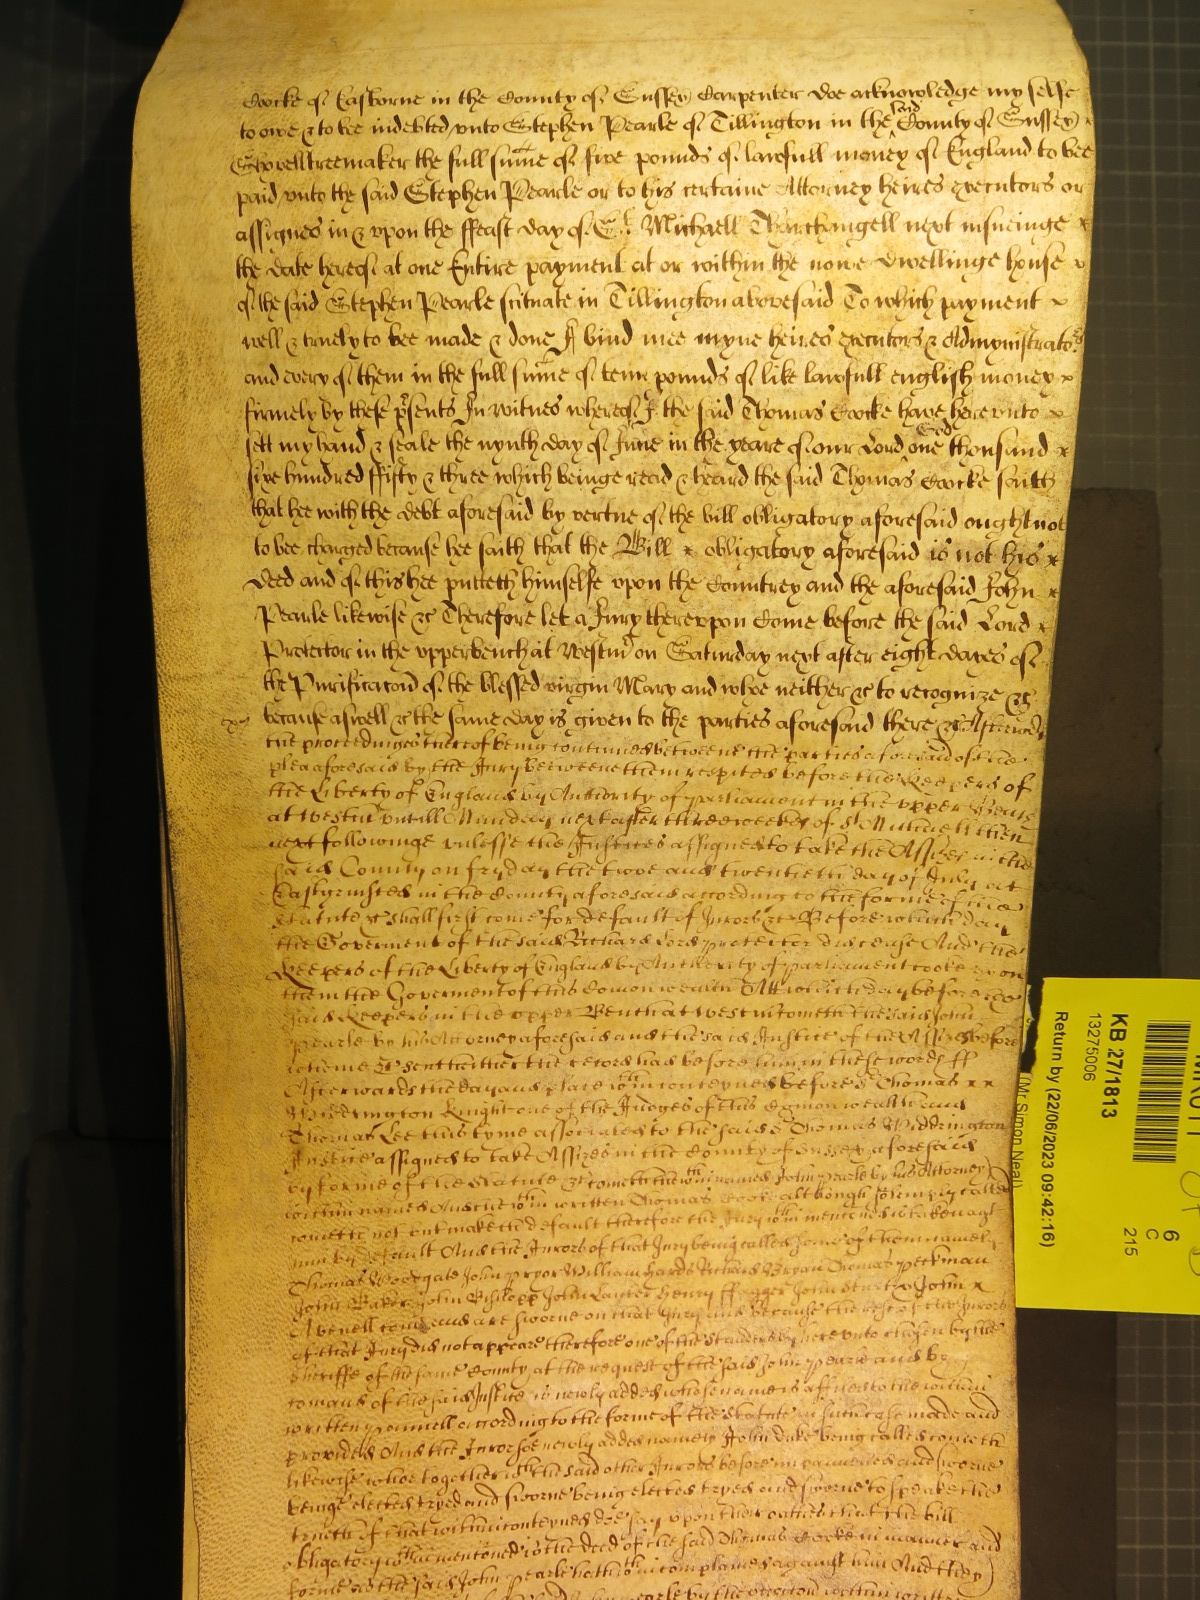 Cocke of Easborne in the County of Sussex Carpenter doe acknowledge my selfe
to owe & to bee indebted unto Stephen Pearle of Tillington in the said County of Sussex
Shovelltreemaker the full sume of five pounds of lawfull money of England to bee
paid unto the said Stephen Pearle or to his certaine Attorney heires executors or
assignes in & upon the ffeast day of St. Michaell Tharchangell next insueinge
the date hereof at one Entire payment at or within the nowe dwellinge house
of the said Stephen Pearle scituate in Tillington abovesaid To which payment
well & truely to bee made & done I bind mee myne heires executors & Admynistrators
and every of them in the full sume of tenn pounds of like lawfull english money
firmely by these psents In witnes whereof I the said Thomas Cocke have hereunto
sett my hand & seale the nynth day of June in the yeare of our Lord God one thousand
sixe hundred ffifty & three which beinge read & heard the said Thomas Cocke saith
that hee with the debt aforesaid by vertue of the bill obligatory aforesaid ought not
to bee charged because hee saith that the Bill obligatory aforesaid is not his
deed and of this hee putteth himselfe upon the Countrey and the aforesaid John
Pearle likewise &c Therefore let a Jury thereupon Come before the said Lord
Protector in the upperbench at Westmr on Saturday next after eight dayes of
the Purificacon of the blessed virgin Mary and whoe neither &c to recognize &c
because aswell &c the same day is given to the parties aforesaid there &c Afterwards
the proceedinges thereof being continued betweene the parties aforesaid of the
plea aforesaid by the Jury betweene them respited before the Keepers of
the Liberty of England by Authority of parliament in the upper Bench
at Westmr untill Munday next after three weekes of St Michaell then
next followinge unlesse the Justices assigned to take the Assizes in the
said County on fryday the two and twentieth day of July at
Eastgrinsted in the County aforesaid according to the forme of the
statute &c shall first come for default of Jurors &c Before which day
the Goverment of the said Richard Lord protector did cease And the
Keepers of the Liberty of England by Authority of parliament tooke upon
them the Goverment of this Comonwealth Att which day before the
said Keepers in the upper Bench at Westmr cometh the said John
Pearle by his Attorney aforesaid and the said Justice of the Assizes before
whome &c sent hither the record had before him in these words ff
Afterwards the day and place within conteyned before Sr Thomas
Widdrington Knight one of the Judges of this Comonwealth and
Thomas Lee this tyme associated to the said Sr Thomas Widdrington
Justice assigned to take Assizes in the County of Sussex aforesaid
by forme of the statute &c cometh the within named John Pearle by his Attorney
within named And the within written Thomas Cooke although solemnly called
cometh not but maketh default therefore the Jury within mencioned is taken agt
him by default And the Jurors of that Jury being called some of them namely
Thomas Woodgate John Pryor William Hards Richard Bryan Thomas Peckman
John Baker John Bishopp John Lanter Henry John John
Avenell come and are sworne on that Jury and because the rest of the Jurors
of that Jury did not appeare therefore one of the standers by hereunto chosen by the
Sheriffe of the same County at the request of the said John Pearle and by
comand of the said Justice is newly added whose name is affiled to the within
written pannell according to the forme of the statute in such case made and
provided And the Juror soe newly added namely John Duke being called cometh
likewise whoe together with the said other Jurors before impannelled and sworne
being elected tryed and sworne being elected tryed and sworne to speake the
trueth of that within conteyned doe say upon their oathes that the bill
obligatory within mentioned is the deed of the said Thomas Cooke in manner and
forme as the said John Pearle hath within complained against him And they
KB 27/1813
13275006
Return by (22/06/2023 09:42:16)
(Mr Simon Neal)
6
C
215